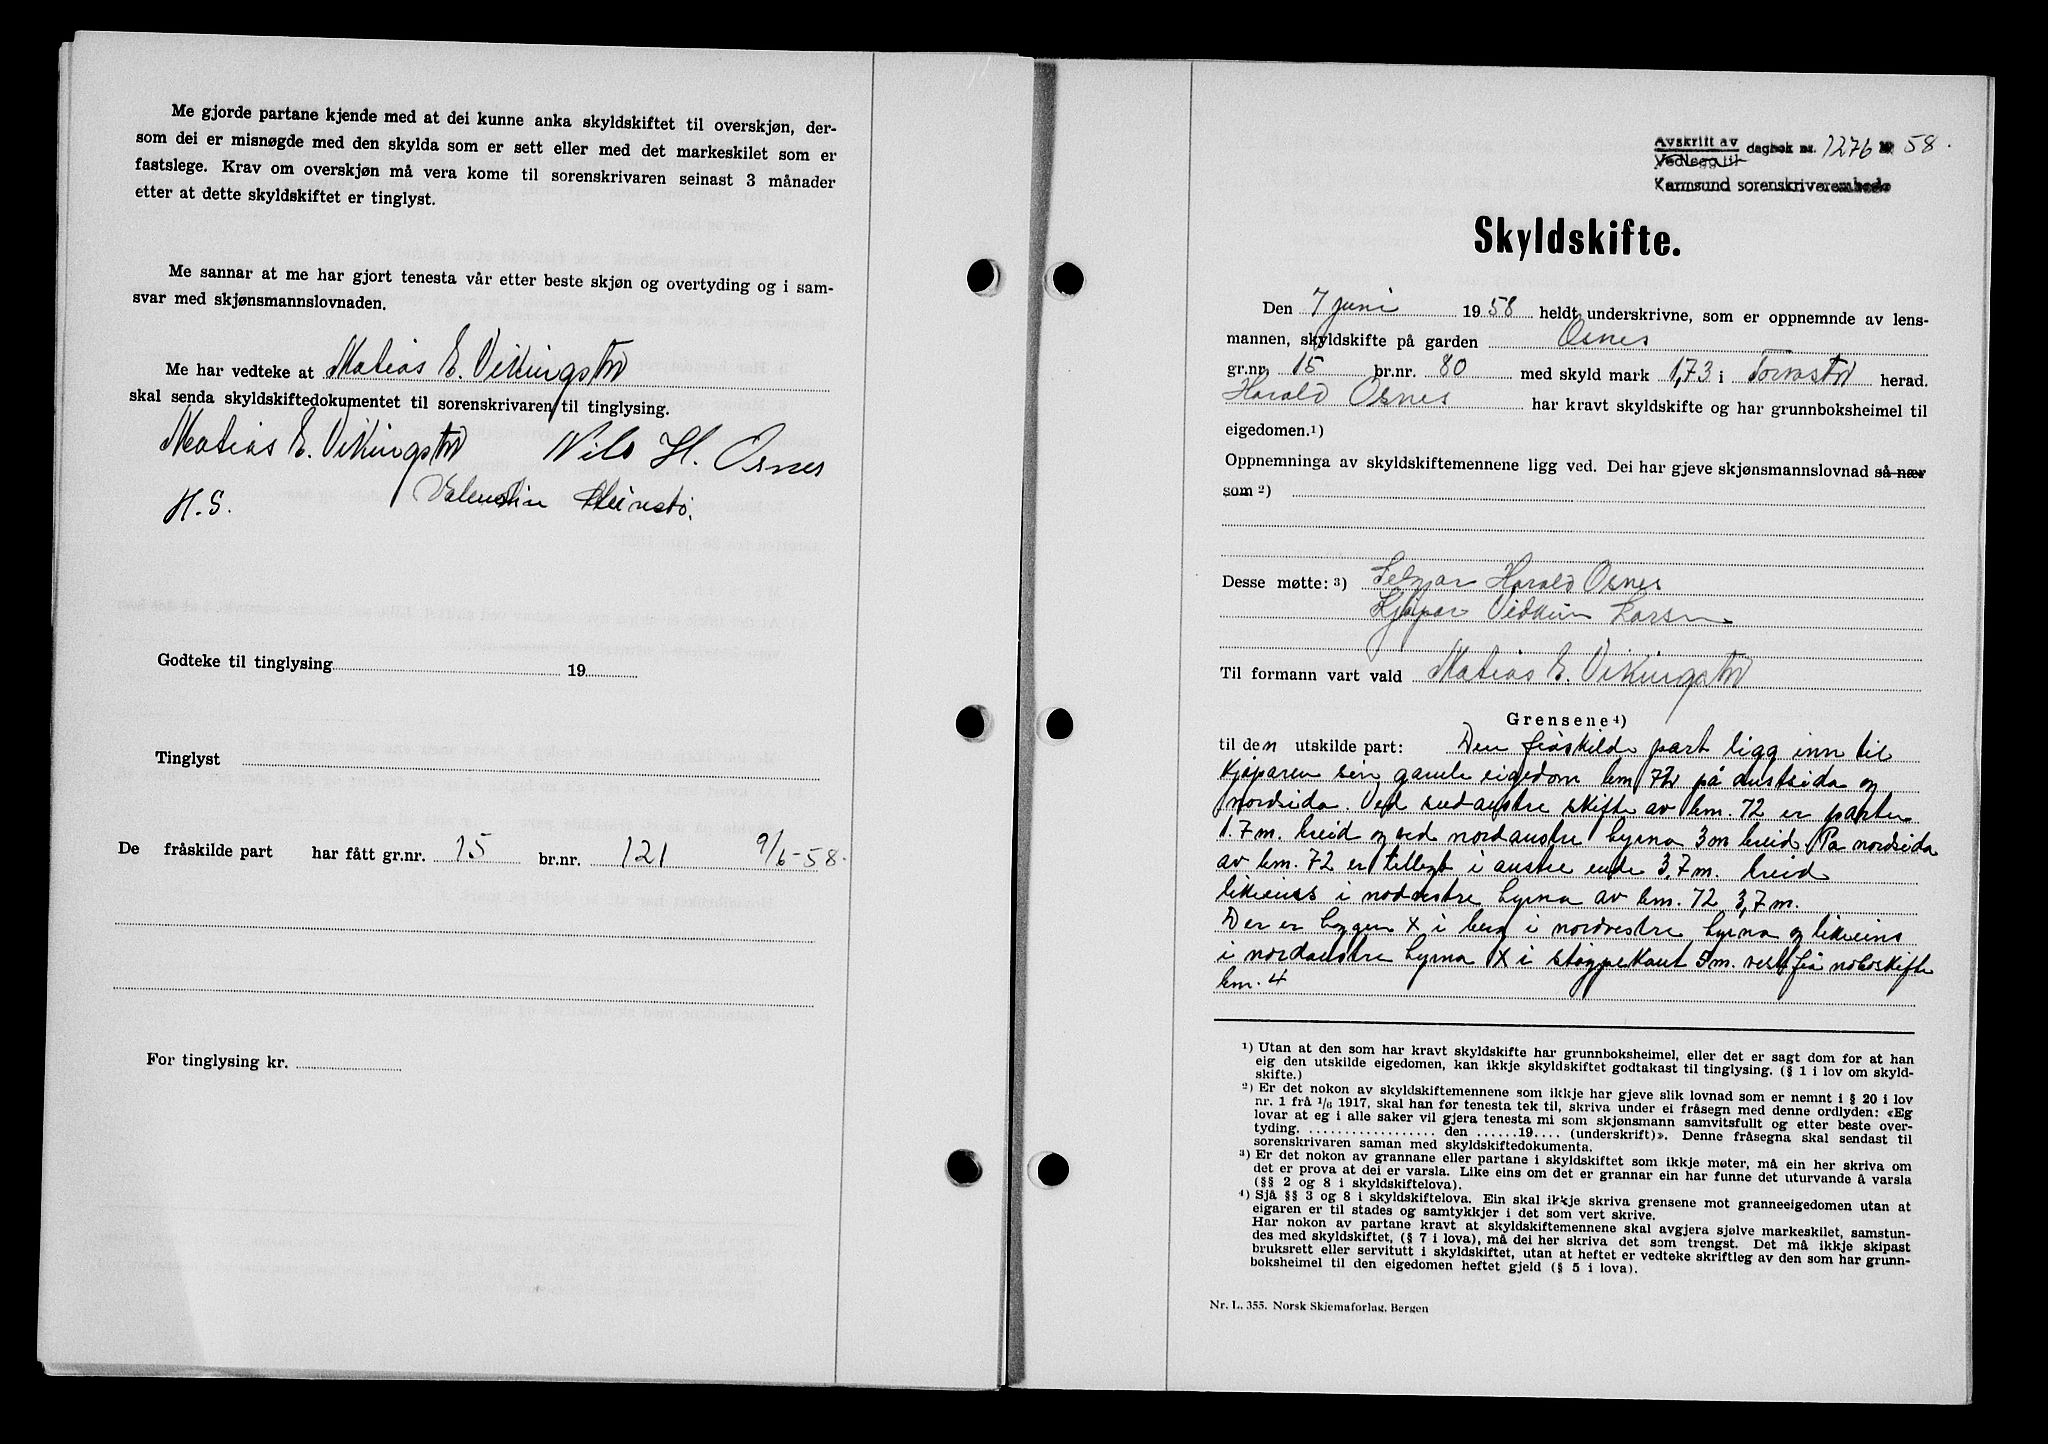 Me gjorde partane kjende med at dei kunne anka skyldskiftet til overskjøn, der-
som dei er misnøgde med den skylda som er sett eller med det markeskilet som er
fastslege. Krav om overskjøn må vera kome til sorenskrivaren seinast 3 månader
etter at dette skyldskiftet er tinglyst.
Me sannar at me har gjort tenesta vår etter beste skjøn og overtyding og i sam-
svar med skjønsmannslovnaden.
Me har vedteke at Matias E. Vikingstad
skal senda skyldskiftedokumentet til sorenskrivaren til tinglysing.
Matias E. Vikingstad Nils H. Osnes
H.S. Valentin Steinstø.
Godteke til tinglysing 19
Tinglyst
De fråskilde part har fått gr.nr. 15 br.nr. 121 9/6-58.
For tinglysing kr.
Avskrift av
Vedlegg til dagbok nr. 1276 19 58.
Karmsund sorenskriverembede
Skyldskifte.
Den 7 juni 1958 heldt underskrivne, som er oppnemnde av lens-
mannen, skyldskifte på garden Osnes
gr.nr. 15 br.nr. 80 med skyld mark 1,73 i Torvastad herad.
Harald Osnes har kravt skyldskifte og har grunnboksheimel til
eigedomen.1)
Oppnemninga av skyldskiftemennene ligg ved. Dei har gjeve skjønsmannslovnad så nær
som 2)
Desse møtte: 3) Seljar Harald Osnes
Kjøpar Vidkun Larsen
Til formann vart vald Matias E. Vikingstad
Grensene 4)
til den utskilde part: Den fråskilde part ligg inn til
Kjøparen sin gamle eigedom bm 72 på austsida og
nordsida. Ved sudaustre skifte av bm. 72 er parten
1.7 m. breid og ved nordaustre hyrna 3 m breid. På nordsida
av bm. 72 er tillegt i austre ende 3,7 m. breid
likeeins i nordvestre hyrna av bm. 72 3,7 m.
Der er hoggen X i berg i nordvestre hyrna og likeeins
i nordaustre hyrna X i støypekant 5 m. vest frå naboskifte
bm. 4
1) Utan at den som har kravt skyldskifte har grunnboksheimel, eller det er sagt dom for at han
eig den utskilde eigedomen, kan ikkje skyldskiftet godtakast til tinglysing. (§ 1 i lov om skyld-
skifte.)
2) Er det nokon av skyldskiftemennene som ikkje har gjeve slik lovnad som er nemnt i § 20 i lov
nr. 1 frå 1/6 1917, skal han før tenesta tek til, skriva under ei fråsegn med denne ordlyden: «Eg
lovar at eg i alle saker vil gjera tenesta mi som skjønsmann samvitsfullt og etter beste over-
tyding. .................. den ......19.... (underskrift)». Denne fråsegna skal sendast til
sorenskrivaren saman med skyldskiftedokumenta.
3) Er det nokon av grannane eller partane i skyldskiftet som ikkje møter, må ein her skriva om
det er prova at dei er varsla. Like eins om det er grannar ein har funne det uturvande å varsla
(§§ 2 og 8 i skyldskiftelova).
4) Sjå §§ 3 og 8 i skyldskiftelova. Ein skal ikkje skriva grensene mot granneeigedomen utan at
eigaren er til stades og samtykkjer i det som vert skrive.
Har nokon av partane kravt at skyldskiftemennene skal avgjera sjølve markeskilet, samstun-
des med skyldskiftet, (§ 7 i lova), må dei her skriva det som trengst. Det må ikkje skipast
bruksrett eller servitutt i skyldskiftet, utan at heftet er vedteke skriftleg av den som har grunn-
boksheimel til den eigedomen heftet gjeld (§ 5 i lova).
Nr. L. 355. Norsk Skjemaforlag, Bergen